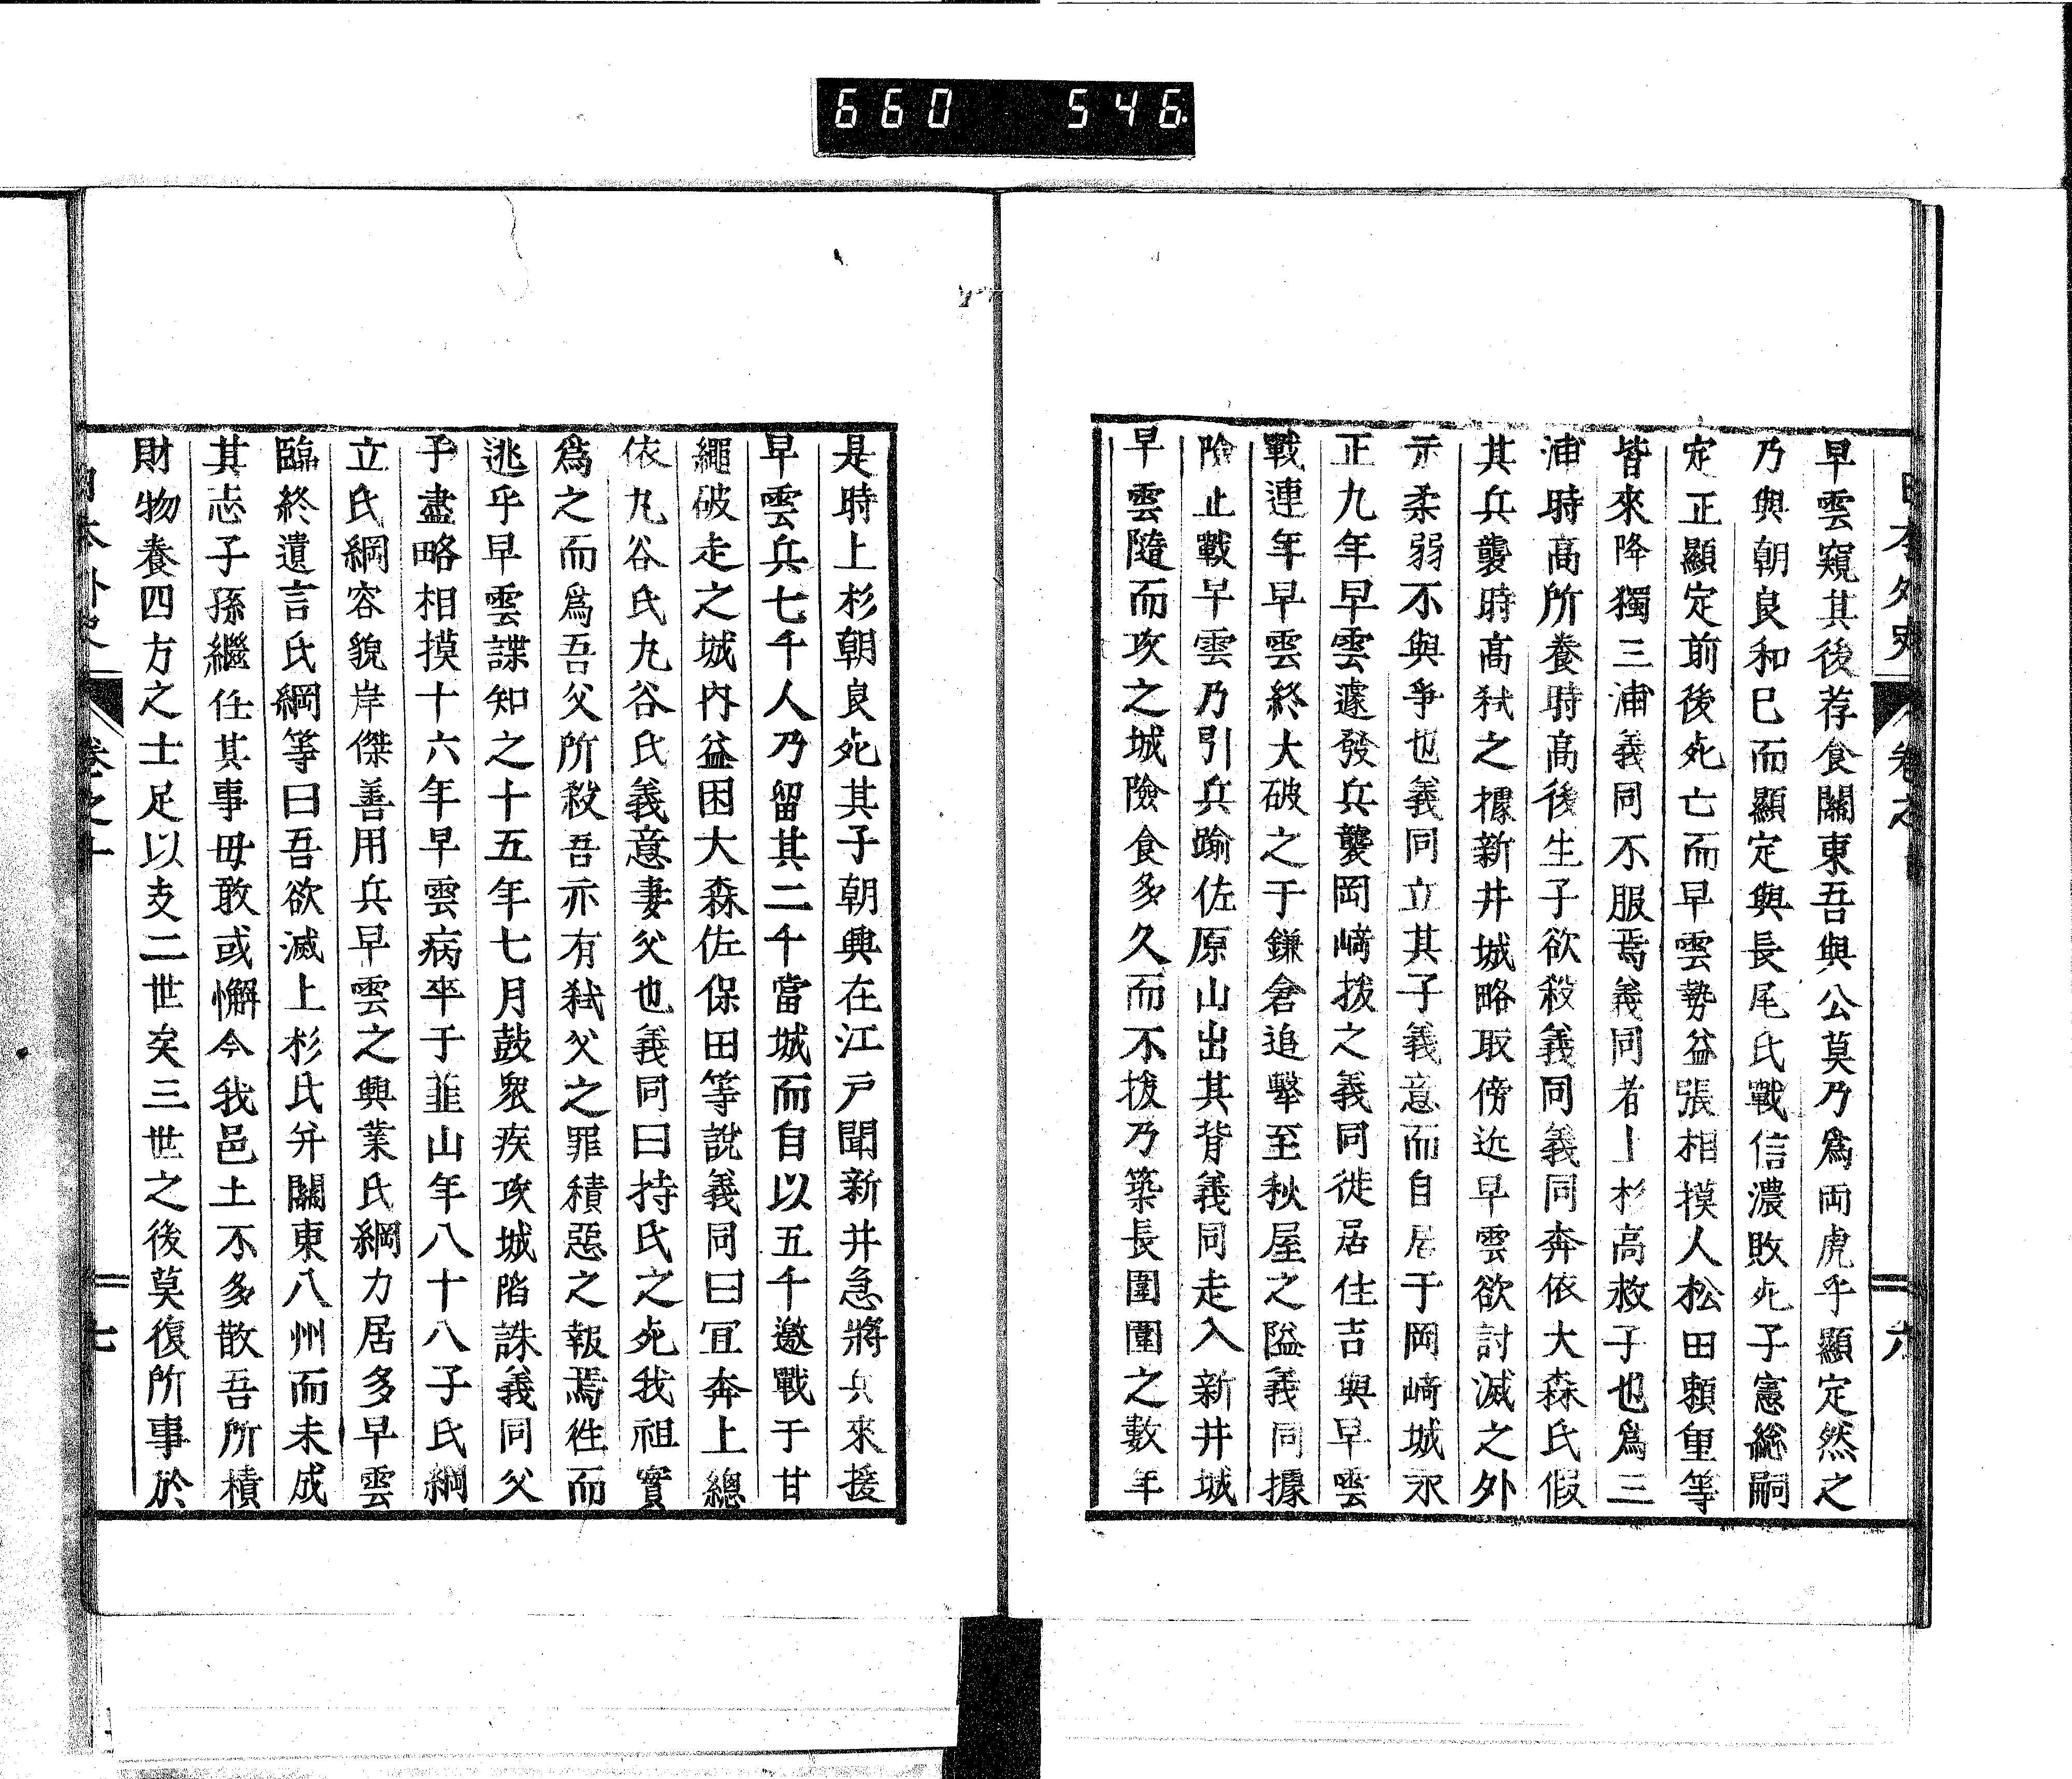 660 546
日本外史 卷之 六
早雲窺其後荐食關東吾與公莫乃爲両虎乎顯定然之
乃與朝良和巳而顯定與長尾氏戰信濃敗死子憲総嗣
定正顯定前後死亡而早雲勢益張相摸人松田頼重等
皆來降獨三浦義同不服焉義同者上杉高救子也爲三
浦時高所養時高後生子欲殺義同義同奔依大森氏假
其兵襲時高弒之據新井城略取傍近早雲欲討滅之外
示柔弱不與爭也義同立其子義意而自居于岡﨑城永
正九年早雲遽發兵襲岡﨑拔之義同徙居住吉與早雲
戰連年早雲終大破之于鎌倉追擊至秋屋之隘義同據
險止戰早雲乃引兵踰佐原山出其背義同走入新井城
早雲隨而攻之城險食多久而不拔乃築長圍圍之數年
是時上杉朝良死其子朝興在江戸聞新井急將兵來援
早雲兵七千人乃留其二千當城而自以五千邀戰于甘
繩破走之城内益困大森佐保田等說義同曰宜奔上總
依丸谷氏丸谷氏義意妻父也義同曰持氏之死我祖實
爲之而爲吾父所殺吾亦有弒父之罪積惡之報焉徃而
逃乎早雲諜知之十五年七月鼓衆疾攻城陷誅義同父
子盡略相摸十六年早雲病卒于韮山年八十八子氏綱
立氏綱容貌岸傑善用兵早雲之興業氏綱力居多早雲
臨終遺言氏綱等曰吾欲滅上杉氏并關東八州而未成
其志子孫繼任其事毋敢或懈今我邑土不多散吾所積
財物養四方之士足以支二世矣三世之後莫復所事於
日本外史 卷之十 七